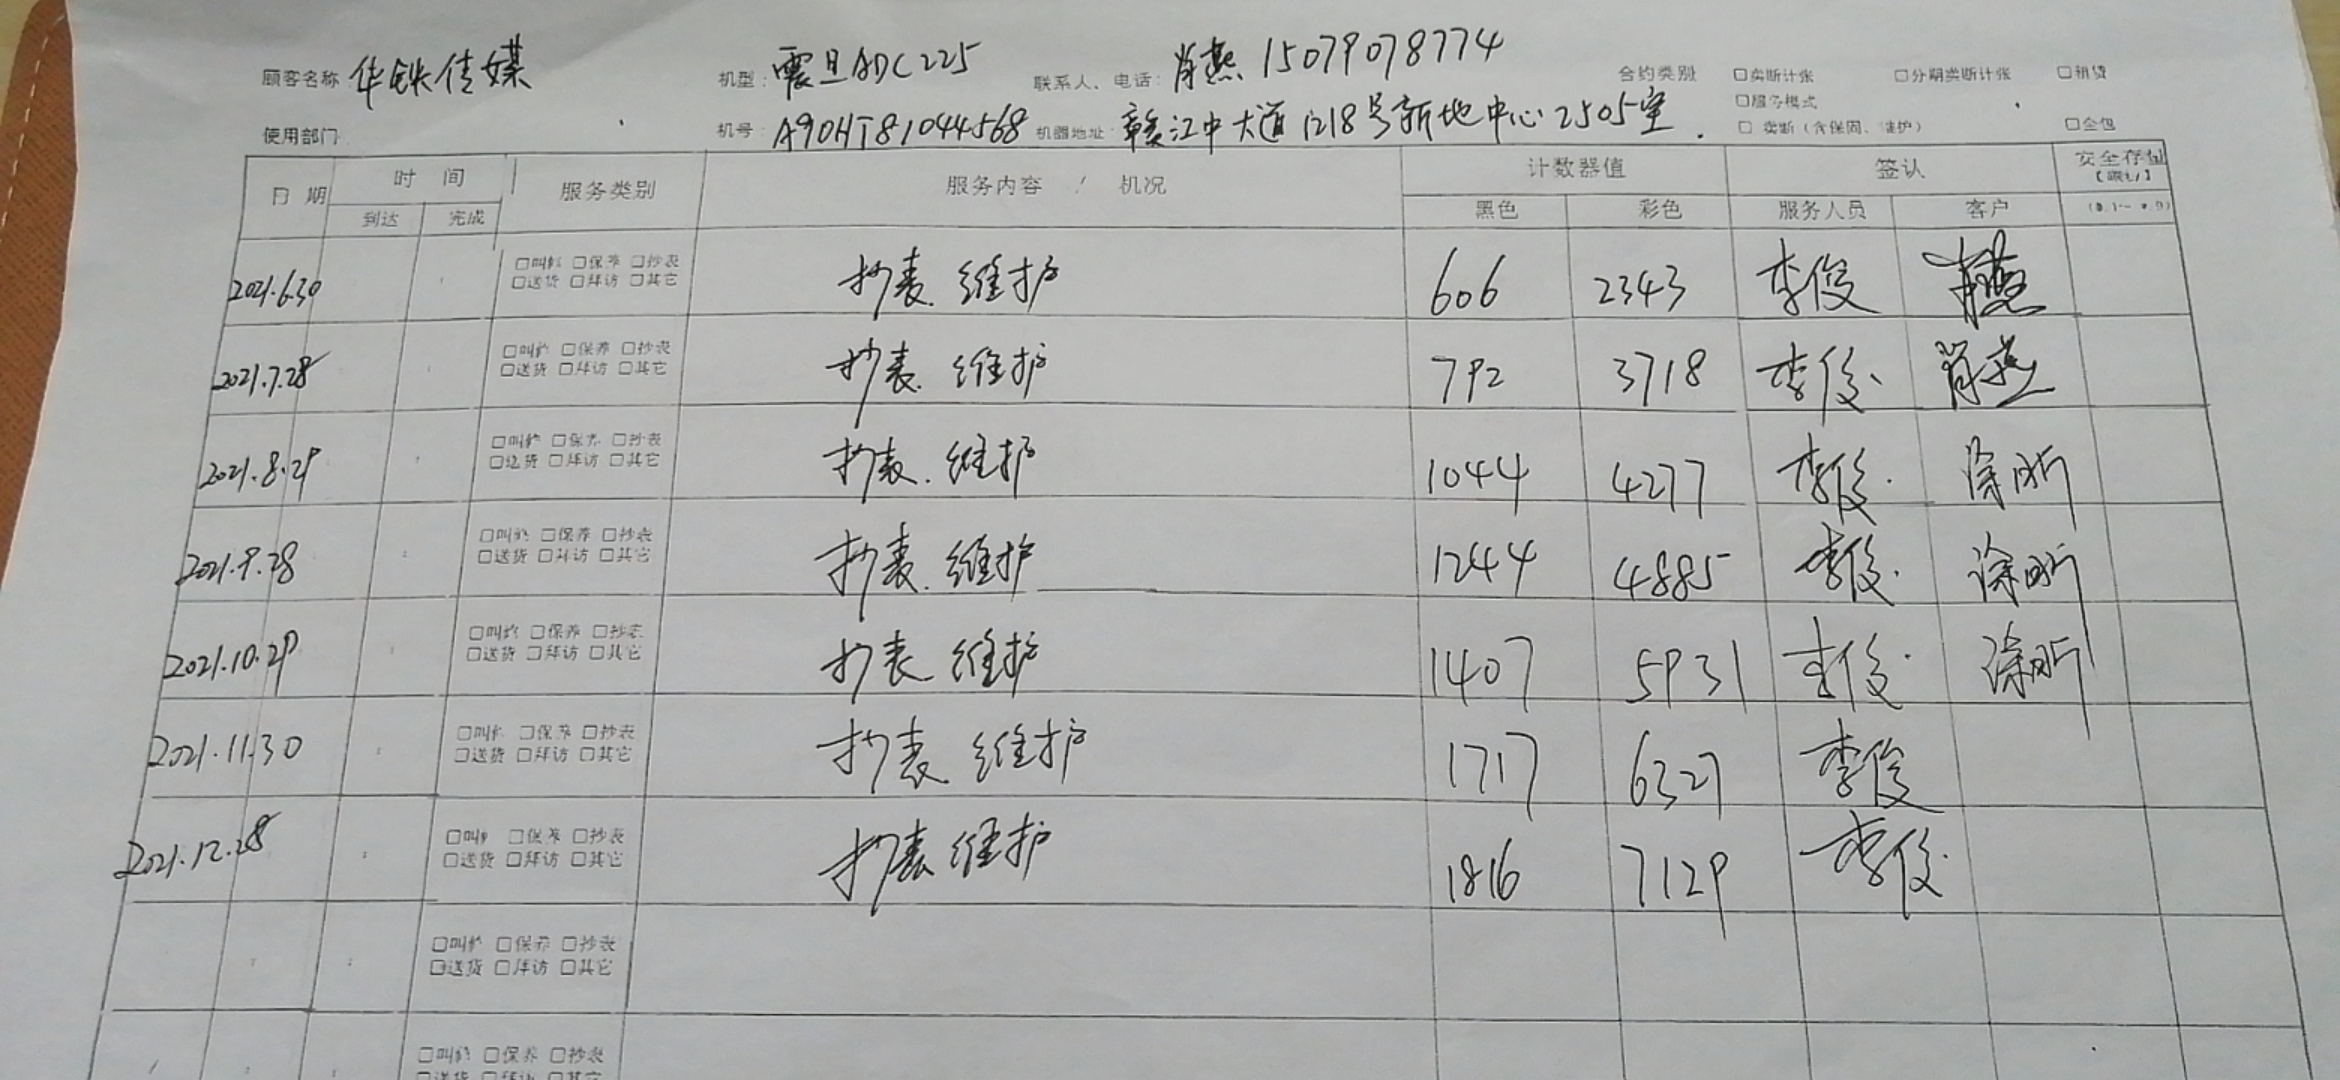 顾客名称 华铁传媒 机型: 震旦ADC225 联系人、电话: 肖燕 15079078774 合约类别 □卖断计张 □分期卖断计张 □租赁
□服务模式
使用部门 机号: A90HT81044568 机器地址: 赣江中大道1218号新地中心2505室. □ 卖断(含保固、维护) □全包
日期 时间 服务类别 服务内容 / 机况 计数器值 签认 安全存量
到达 完成 黑色 彩色 服务人员 客户
2021.6.30 □叫修 □保养 □抄表 抄表.维护 606 2343 李俊 肖燕
□送货 □拜访 □其它
2021.7.28 □叫修 □保养 □抄表 抄表.维护 792 3718 李俊 肖燕
□送货 □拜访 □其它
2021.8.29 □叫修 □保养 □抄表 抄表.维护 1044 4277 李俊 涂昕
□送货 □拜访 □其它
2021.9.28 □叫修 □保养 □抄表 抄表.维护 1244 4885 李俊 涂昕
□送货 □拜访 □其它
2021.10.29 □叫修 □保养 □抄表 抄表 维护 1407 5931 李俊 涂昕
□送货 □拜访 □其它
2021.11.30 □叫修 □保养 □抄表 抄表 维护 1717 6327 李俊
□送货 □拜访 □其它
2021.12.28 □叫修 □保养 □抄表 抄表维护 1816 7129 李俊
□送货 □拜访 □其它
□叫修 □保养 □抄表
□送货 □拜访 □其它
□叫修 □保养 □抄表
□送货 □拜访 □其它